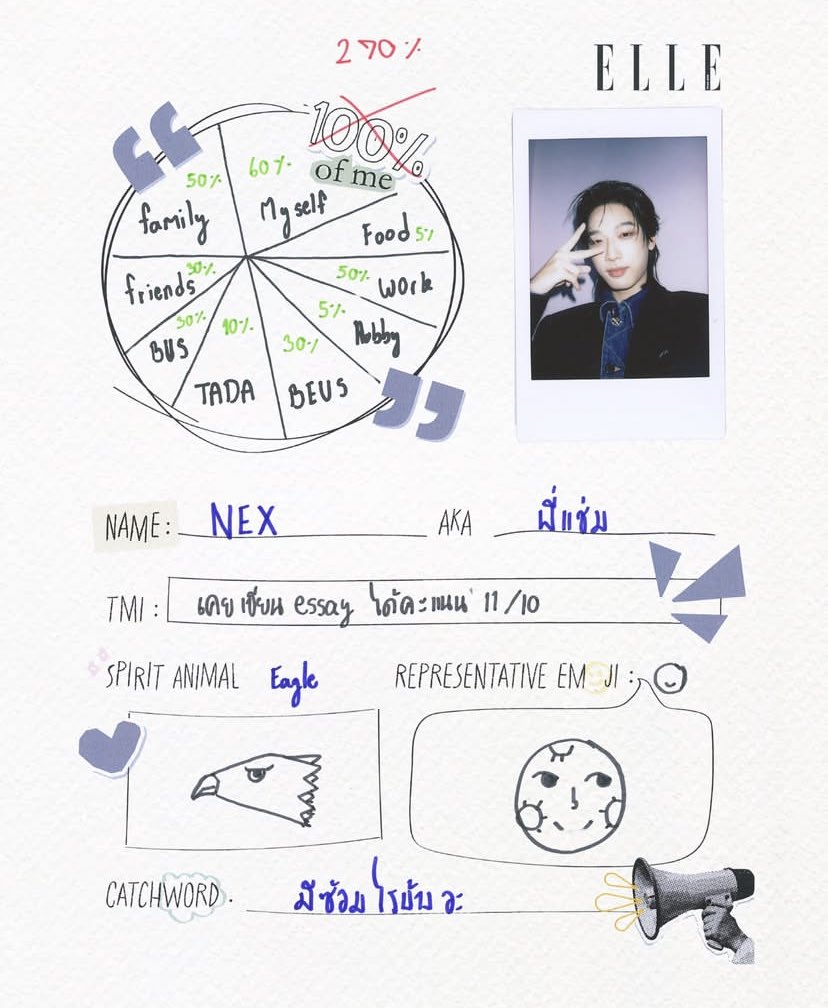 270%
ELLE
100%
of me
50%
family
60%
Myself
Food 5%
friends 30%
50% Work
30%
BUS
10%
TADA
30%
BEUS
5%
Hobby
NAME: NEX
AKA พี่แช่ม
TMI : เคยเขียน essay ได้คะแนน 11/10
SPIRIT ANIMAL Eagle
REPRESENTATIVE EMOJI :
CATCHWORD. มีซ้อมไรบ้างอะ